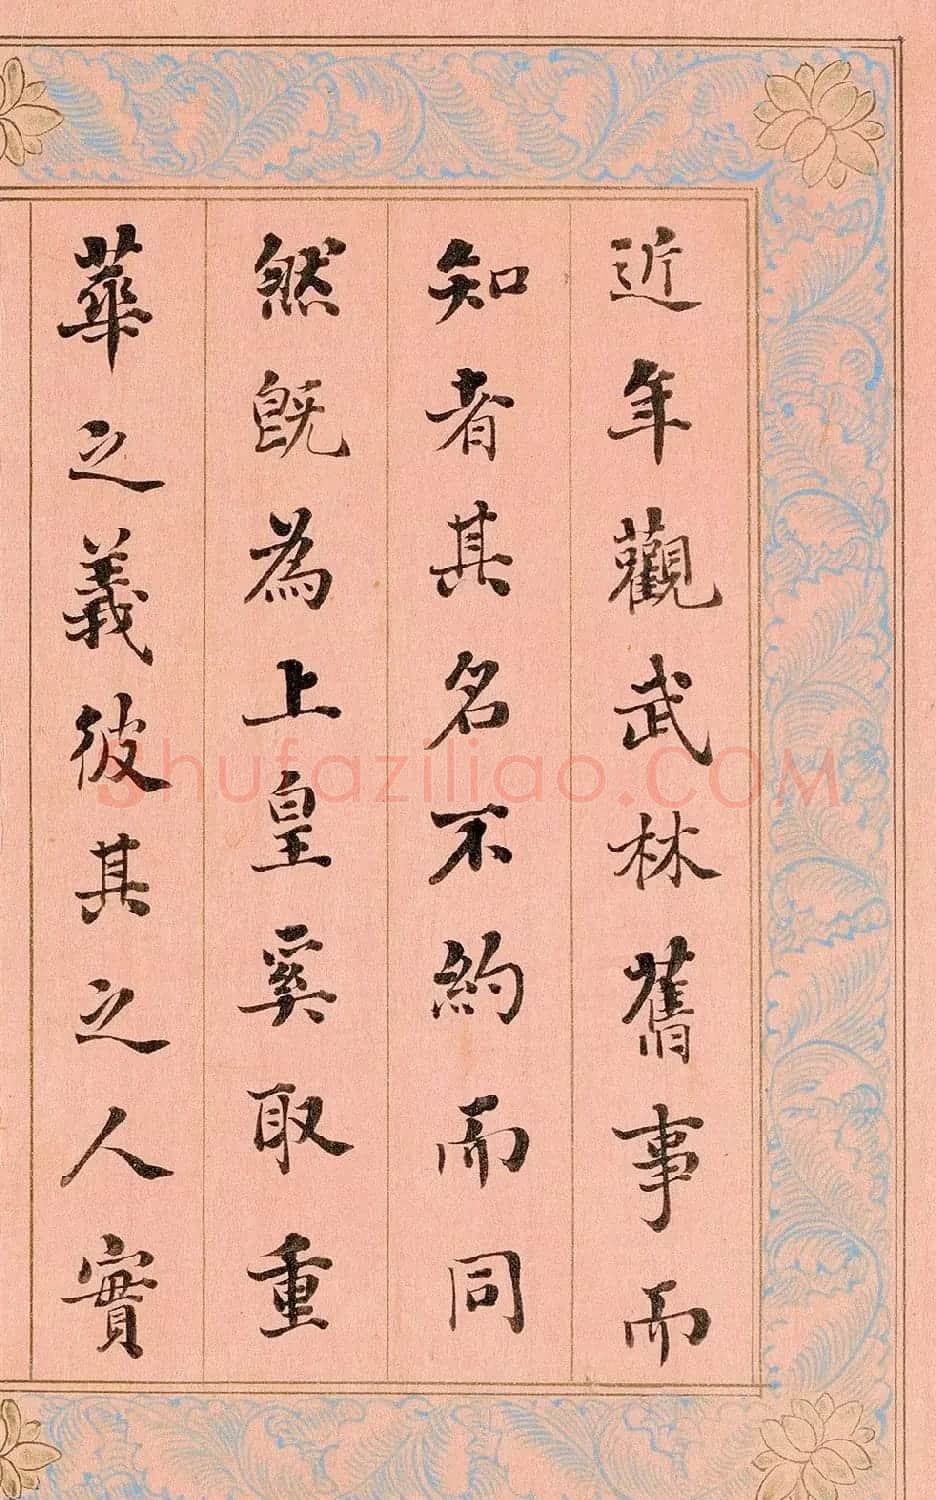 近年觀武林舊事而
知者其名不約而同
然既為上皇奚取重
華之義彼其之人實
shufaziliao.COM